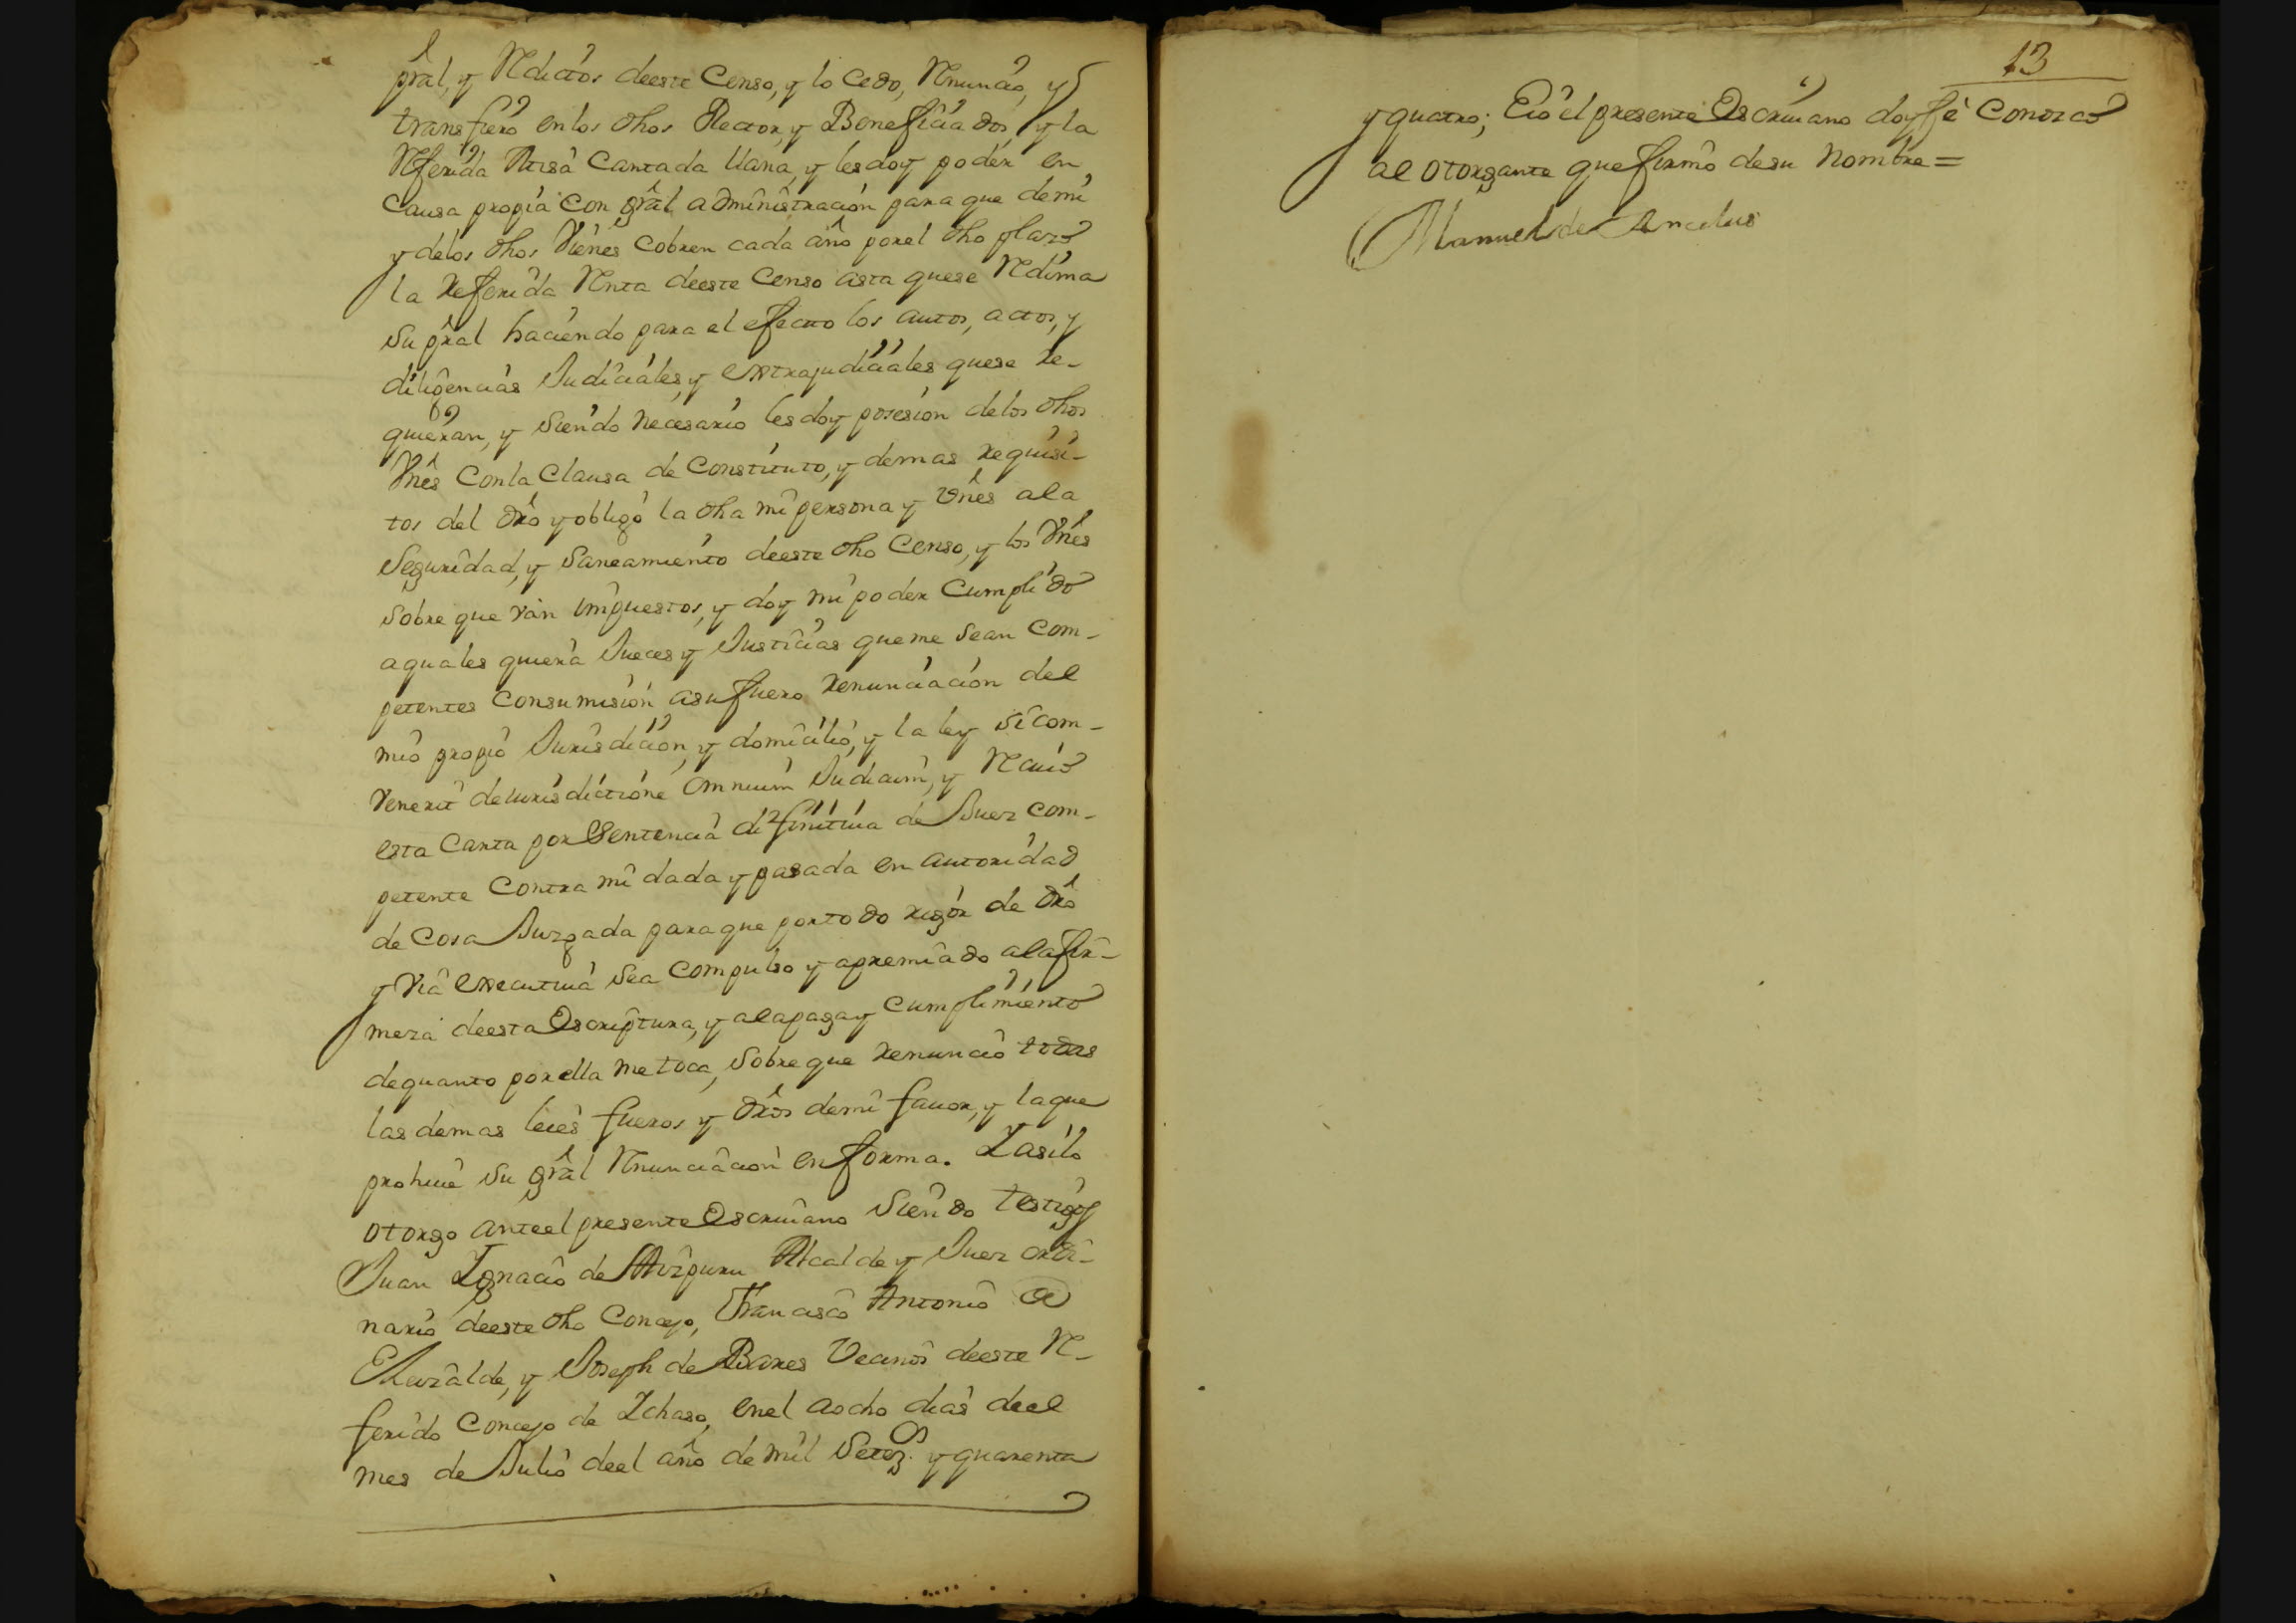 pràl, y Reditos deeste Censo, y lo Cedo, Renuncio, y
transfiero enlos dhos Rector, y Beneficiados, y la
Referida Misa Cantada llana, y lesdoy poder en
causa propia con gràl administracion para que demi
y delos dhos Vienes cobren cada año porel dho plazo
la referida Renta deeste Censo asta quese Redima
su pràl haciendo para el efecto los autos, actos, y
diligencias Judiciales, y extrajudiciales quese re-
quieran, y siendo necesario les doy posesion delos dhos
Vnês Conla Clausa de Constituto, y demas requisi-
tos del drô y obligo la dha mi persona y vnês ala
Seguridad, y Saneamiento deeste dho Censo, y los Vnês
sobre que ván impuestos, y doy mi poder Cumplido
aquales quiera Jueces y Justicias queme sean Com-
petentes Consumision asu fuero renunciacion del
mio propio Jurisdicion, y domicilio, y la ley sicom-
venerit deiurisdictione omnium Judicum, y Recivo
esta Carta por Sentencia difinitiua de Juez Com-
petente Contra mi dada y pasada en autoridad
de Cosa Juzgada paraque portodo rigor de drô
y Via executiua sea Compulso y apremiado alafir-
meza deesta Escriptura, y alapaga y cumplimiento
dequanto porella metoca, sobreque renuncio todas
las demas leies fueros y drôs demi fauor, y laque
prohiue su gràl Renunciacion en forma. Iasilo
otorgo anteel presente Escriuano siendo testigos
Juan Ignacio de Aizpuru Alcalde y Juez ordi-
nario deeste dho Concejo, Francisco Antonio de
Eleizalde, y Joseph de Vecinos deeste Re-
ferido Concejo de Ichaso, enel aocho dias deel
mes de Julio deel año de mil Setezs. y quarenta
13
y quatro; Eio el presente Escriuano doyfé Conozco
al otorgante que firmó desu nombre=
Manuel de